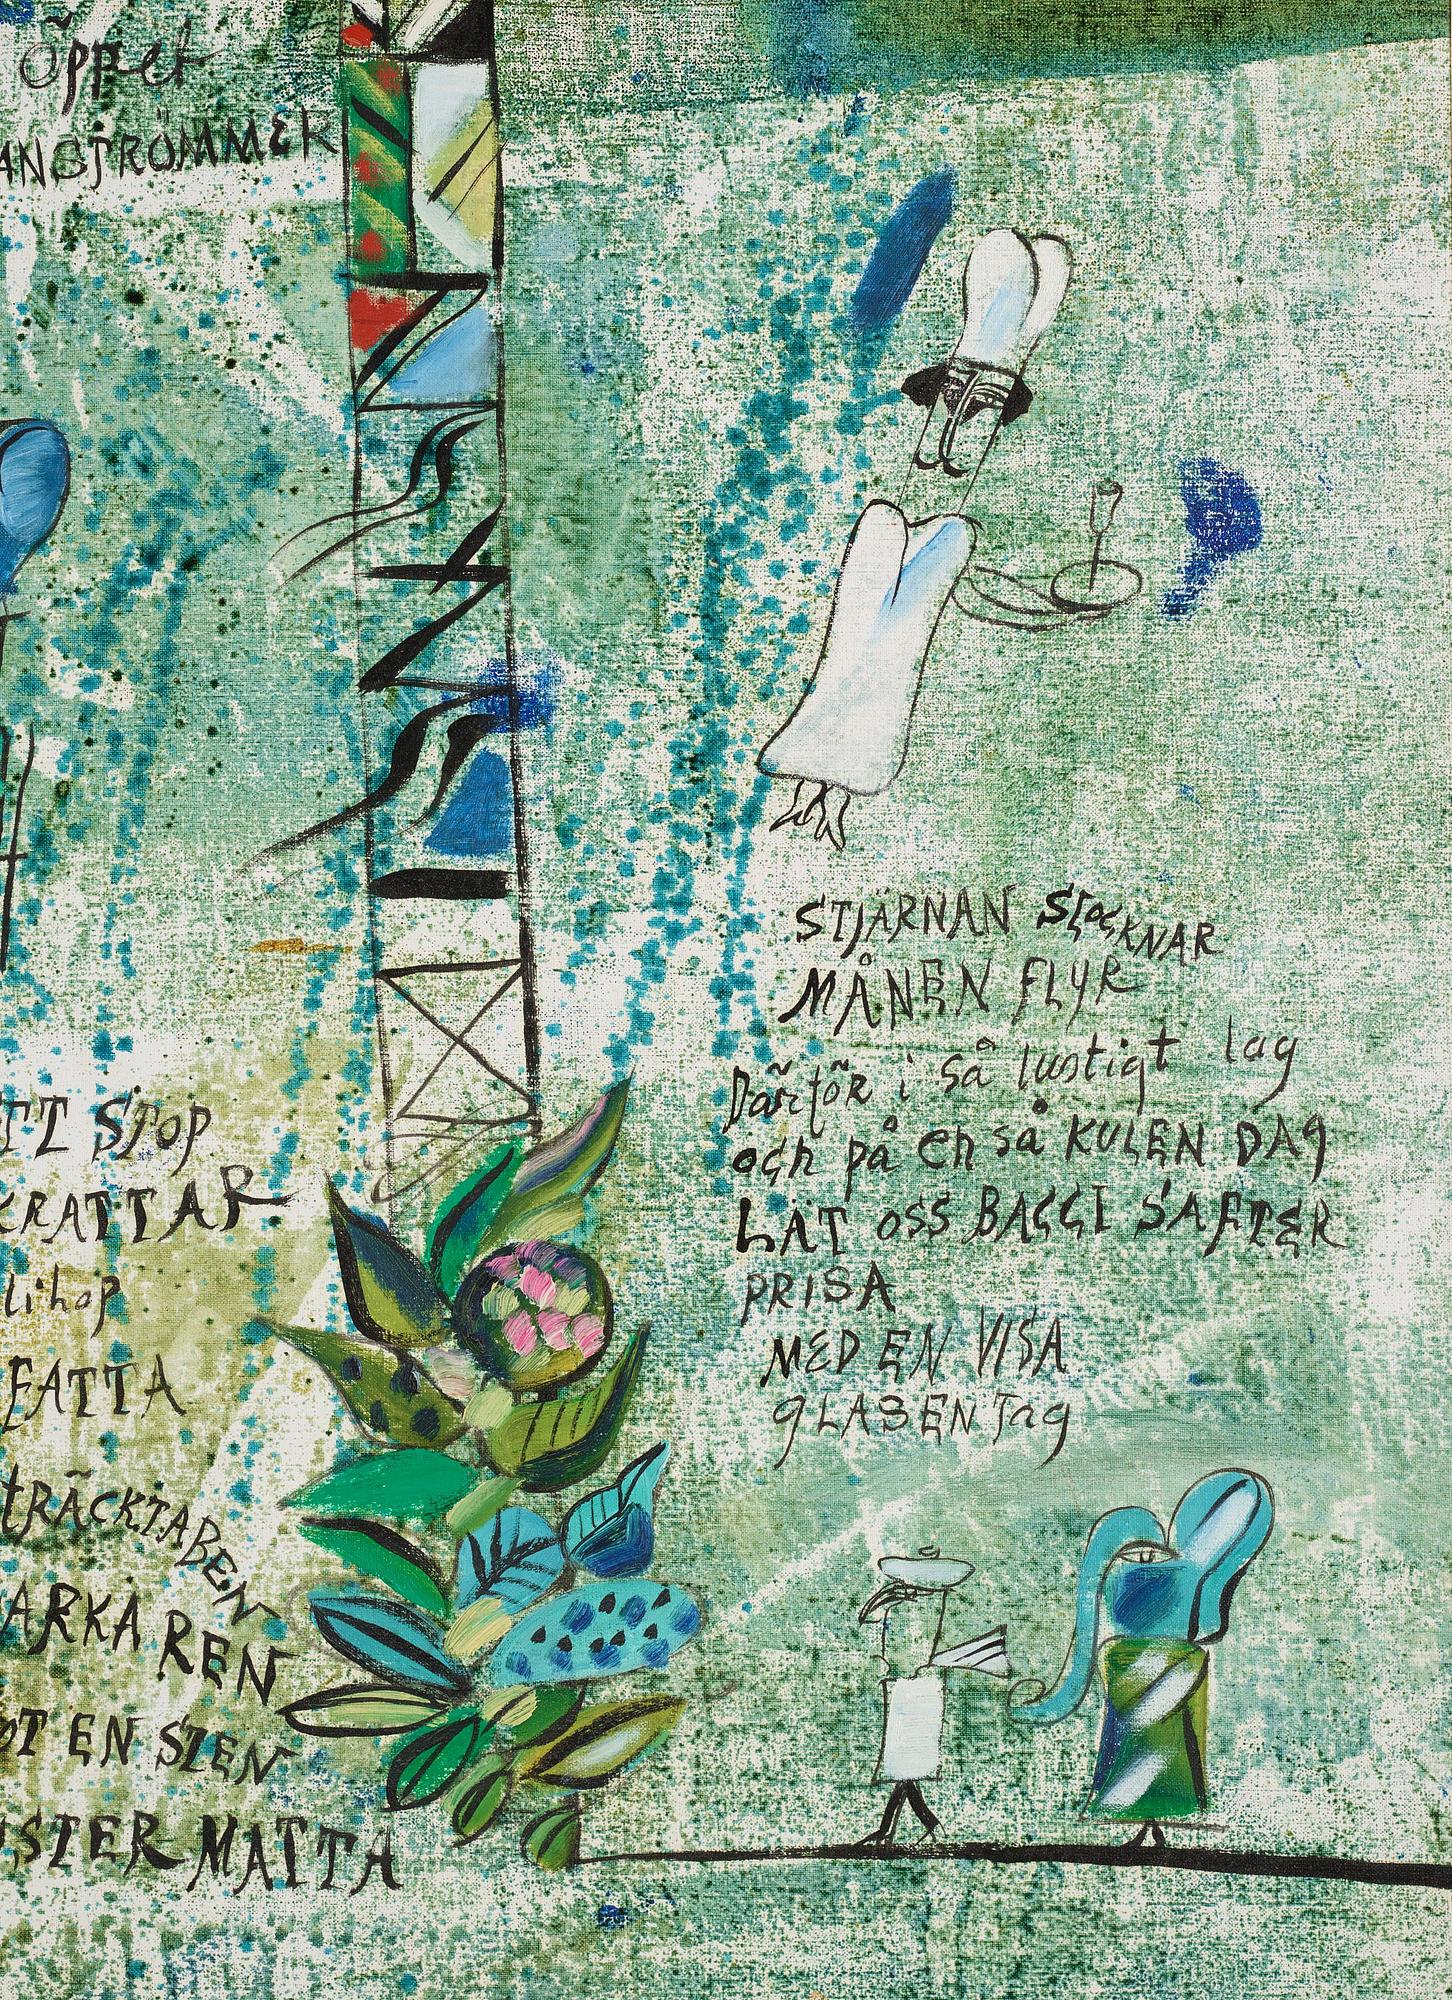 Öppet
ANGSTRÖMMER
STJÄRNAN SLOCKNAR
MÅNEN FLYR
Därför i så lustigt lag
och på en så KULEN DAG
LÅT OSS BAGGI SAFTER
PRISA
MED EN VISA
GLASEN TAG
ETT STOP
KRATTAR
lihop
FATTA
TRÄCKTABEN
ARKA REN
OT EN STEN
ASTER MATTA